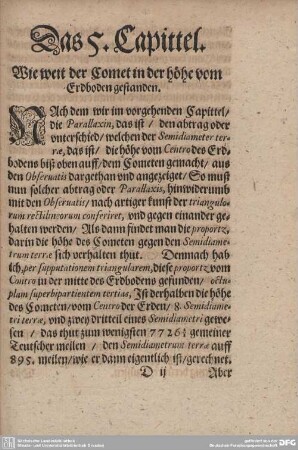 Das 5. Capittel.
Wie weit der Comet in der höhe vom
Erdboden gestanden.
NAch dem wir im vorgehenden Capittel/
die Parallaxin, das ist / den abtrag oder
vnterschied/ welchen der Semidiameter ter-
ræ, das ist/ die höhe vom Centro des Erd-
bodens biß oben auff/ dem Cometen gemacht/ aus
den Obseruatis dargethan vnd angezeiget/ So must
nun solcher abtrag oder Parallaxis, hinwiderumb
mit den Obseruatis/ nach artiger kunst der triangulo-
rum rectilineorum conferiret, vnd gegen einander ge-
halten werden/ Als dann findet man die proportz,
darin die höhe des Cometen gegen den Semidia-
metrum terræ sich verhalten thut. Demnach hab
ich, per supputationem triangularem, diese proportz vom
Centro in der mitte des Erdbodens gefunden/ octu-
plam superbipartientem tertias, Ist derhalben die höhe
des Cometen/ vom Centro der Erden/ 8. Semidiame-
tri terræ, vnd zwey dritteil eines Semidiametri gewe-
sen / das thut zum wenigsten 7726⅔ gemeiner
Teutscher meilen / den Semidiametrum terræ auff
895. meilen/ wie er dann eigentlich ist/ gerechnet.
D ij Aber